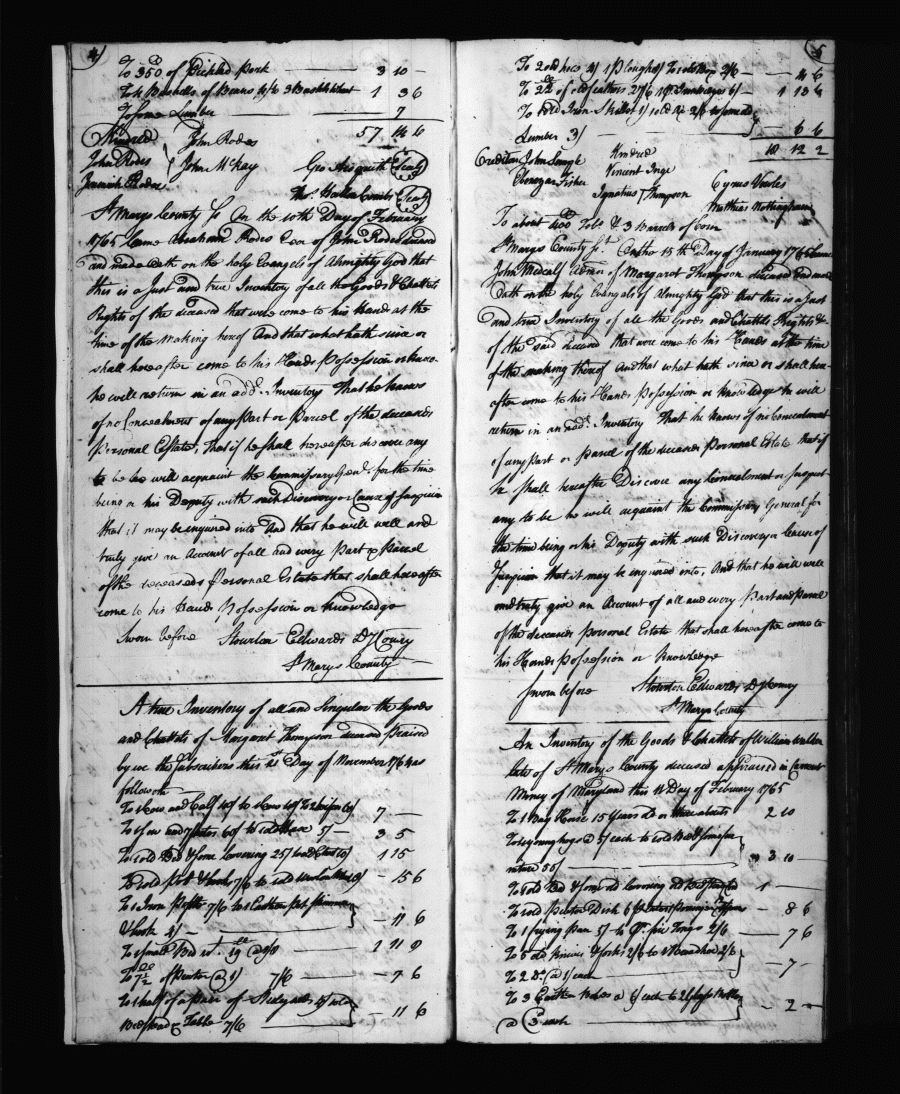 4
To 350 lb of Pickled Pork 3 10 -
To 4 Bushells of Beans 3 Buckwheat 1 3 6
To some Lumber 7
57 14 6
Kindred John Rodes
John Rodes John McKay Geo Aisquith (Seal)
Jeremiah Rodes
Thos. (Seal)
St Marys County Ss On the 10th Day of February
1765 Came Abraham Rodes Exr of John Rodes deceased
and made Oath on the holy Evangels of Almighty God that
this is a Just and true Inventory of all the Goods & Chattels
Rights of the deceased that were come to his Hands at the
time of the making hereof And that what hath since or
shall hereafter come to his Hands Possession or
he will return in an add. Inventory That he knows
of no Concealment of any Part or Parcel of the deceaseds
Personal Estate, That if he shall hereafter discover any
to be he will acquaint the Commissary Genl. for the time
being or his Deputy with such Discovery or Cause of Suspicion
that it may be enquired into And that he will well and
truly give an Account of all and every Part & Parcel
of the deceaseds Personal Estate that shall hereafter
come to his Hands Possession or Knowledge
Sworn before Stourton Edwards D Comry
St Marys County
A true Inventory of all and Singular the Goods
and Chattels of Margaret Thompson deceased Praised
by we the Subscribers this 1st Day of November 176 as
follows
To 1 Cow and Calf 40/ to 1 Cow 7 -
To 1 Sow and 60/ to 5/ 3 5
To 1 old Bed & some Covering 25/ 1 15
To 1 old Pot & hooks 7/6 to - 15 6
To 1 Iron Pestle 7/6 to 1 Earthen Pot
& hook 4/ - 11 6
To 1 small Bed wt. 19 lb @ 1 11 8
To 7½ lb of Pewter @ 1/ 7/6 - 7 6
To 1 half of a pair of old
Bedstead & Table 7/6 - 11 6
5
To 2 old hoes 2/ 1 Plough 2/6 4 6
To 22 lb of old feathers 27/6 6/ 1 13 6
To 1 old Iron Skillet 1/ 2/6 to some old
Lumber 3/ - 6 6
18 12 2
Creditors John Kindred
Ebenezar Fisher Vincent Inge
Ignatius Thompson Cyrus Vowles
Matthias Nottingham
To about 400 lb Tobo. & 3 Barrels of Corn
St Marys County Sst. On the 15th Day of January 1765 Came
John Medcalf Admr of Margaret Thompson deceased and made
Oath on the holy Evangels of Almighty God that this is a Just
and true Inventory of all the Goods and Chattels Rights &
of the said deceased that were come to his Hands at the time
of the making thereof and that what hath since or shall here-
after come to his Hands Possession or Knowledge he will
return in an add. Inventory That he knows of no Concealment
of any Part or Parcel of the deceaseds Personal Estate that if
he shall hereafter Discover any Concealment or suspect
any to be he will acquaint the Commissary General for
the time being or his Deputy with such Discovery or Cause of
Suspicion that it may be enquired into, And that he will well
and truly give an Account of all and every Part and Parcel
of the deceaseds Personal Estate that shall hereafter come to
his Hands Possession or Knowledge
Sworn before Stourton Edwards D Comry
St Marys County
An Inventory of the Goods & Chattels of William
late of St Marys County deceased appraised in Current
Money of Maryland this 14 Day of February 1765
To 1 Bay Horse 15 Years Old or thereabouts 2 10
To young hogs @ 5/ each to 1 old Bed
niture 55/ 3 10 -
To 1 old Bed & some old Covering old Bedstead 1 -
To 1 old Pewter Dish 6/ - 8 6
To 1 frying Pan 5/ to 1 pr fire Tongs 2/6 - 7 6
To 5 old Knives & forks 2/6 to 1 2/6
To 2 Do. @ 1/ each - 7 -
To 3 Earthen @ 1/ each to 2 Glass Bottles
@ 3d each - 2 -